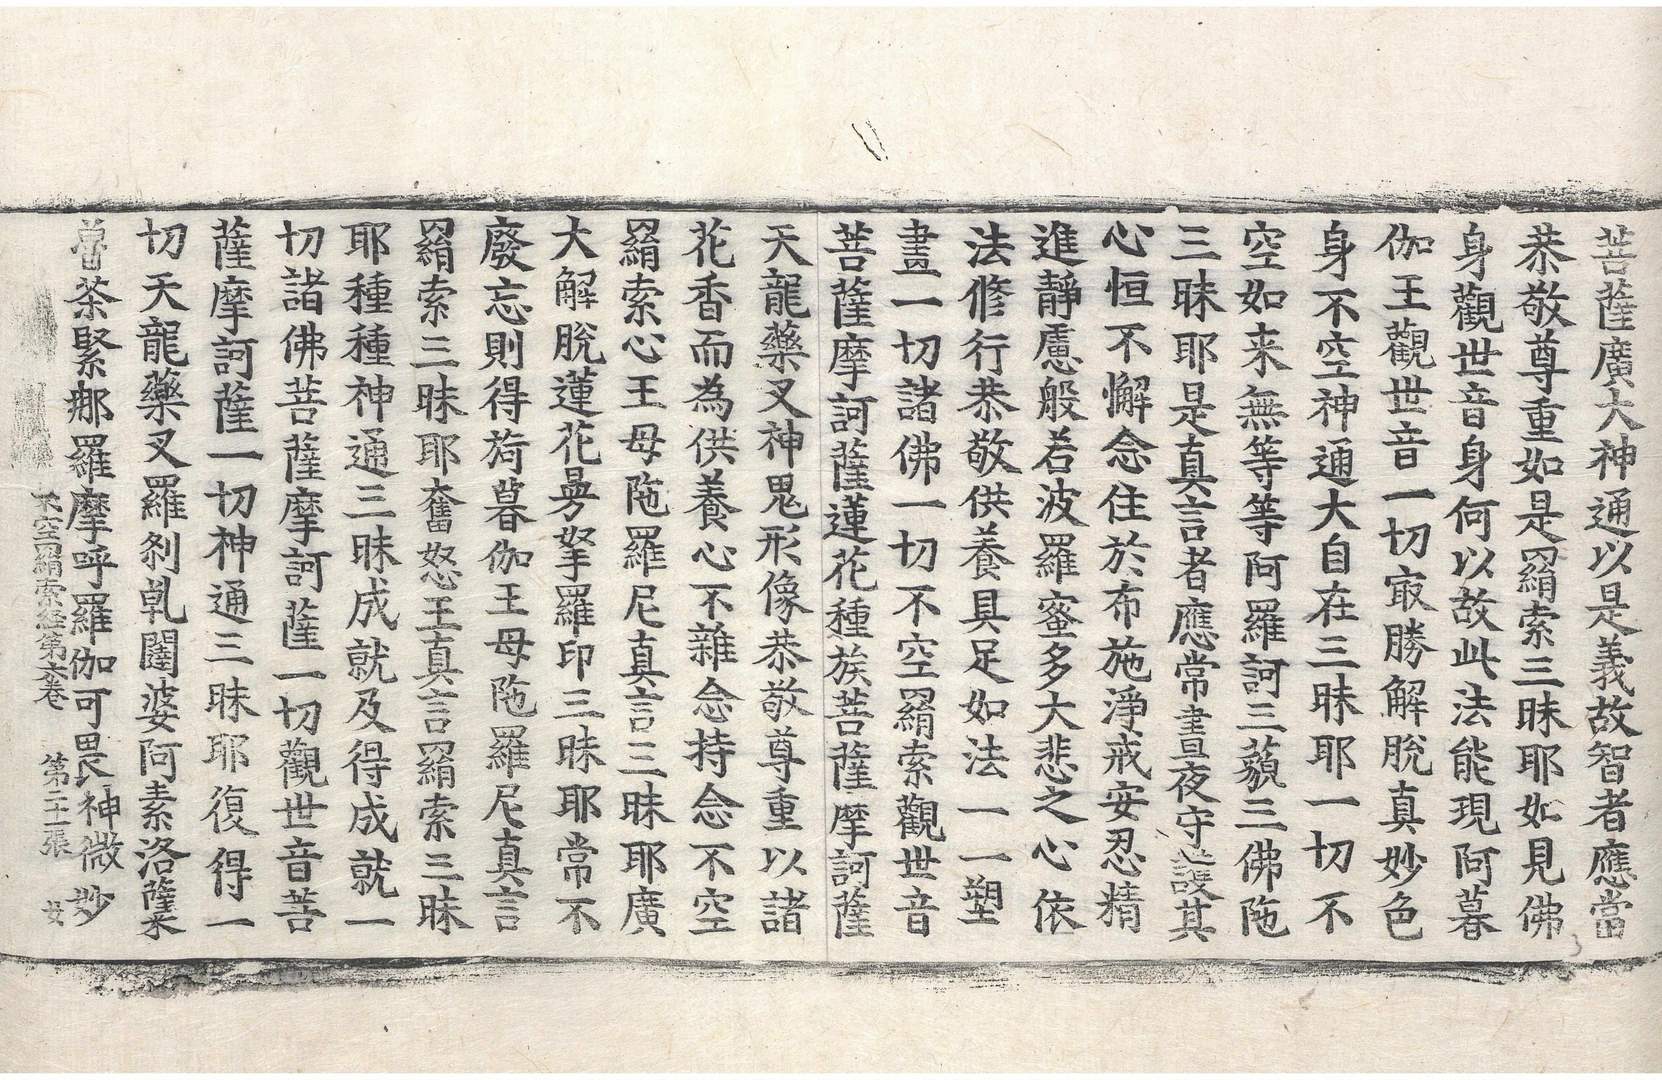 菩薩廣大神通以是義故智者應當
恭敬尊重如是羂索三昧耶如見佛
身觀世音身何以故此法能現阿暮
伽王觀世音一切㝡勝解脫真妙色
身不空神通大自在三昧耶一切不
空如来無等等阿羅訶三藐三佛陁
三昧耶是真言者應常晝夜守護其
心恒不懈念住於布施淨戒安忍精
進靜慮般若波羅蜜多大悲之心依
法修行恭敬供養具足如法一一塑
畫一切諸佛一切不空羂索觀世音
菩薩摩訶薩蓮花種族菩薩摩訶薩
天龍藥叉神鬼形像恭敬尊重以諸
花香而為供養心不雜念持念不空
羂索心王母陁羅尼真言三昧耶廣
大解脫蓮花曼拏羅印三昧耶常不
廢忘則得旖暮伽王母陁羅尼真言
羂索三昧耶奮怒王真言羂索三昧
耶種種神通三昧成就及得成就一
切諸佛菩薩摩訶薩一切觀世音菩
薩摩訶薩一切神通三昧耶復得一
切天龍藥叉羅刹乹闥婆阿素洛薩
嚕茶緊那羅摩呼羅伽可畏神微妙
不空羂索經第卷 第二十張